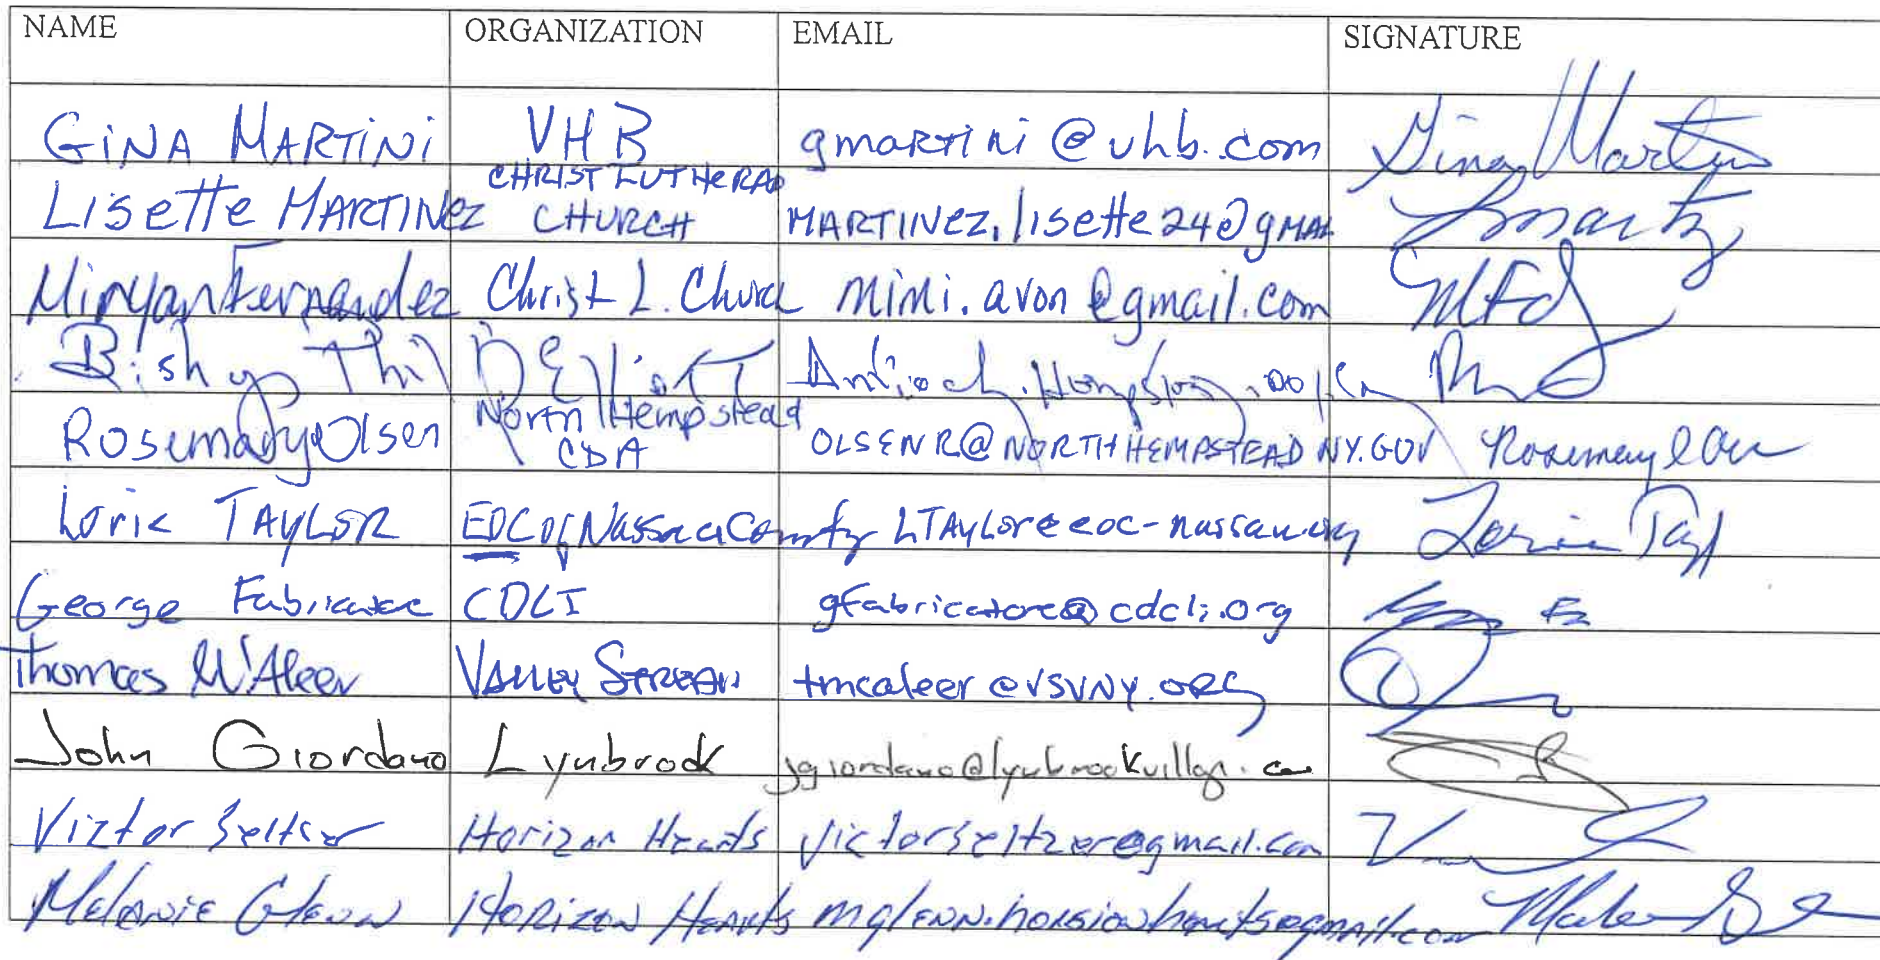 NAME ORGANIZATION EMAIL SIGNATURE
GINA MARTINI VHB gmartini@vhb.com Gina Martini
LISETTE MARTINEZ CHRIST LUTHERAN CHURCH MARTINEZ.lisette24@gmai
Miryan Fernandez Christ L. Church mimi.avon@gmail.com MFd
Bishop Phil Elliott
Rosemary Olsen North Hempstead CDA OLSENR@NORTHHEMPSTEADNY.GOV Rosemary Olsen
Lorie TAYLOR EOC of Nassau County LTAYLor@eoc-nassau.org
George Fabricatore CDLI gfabricatore@cdcli.org
Thomas McAleer VALLEY STREAM tmcaleer@VSVNY.ORG
John Giordano Lynbrook jgiordano@lynbrookvillage.
Victor Seltzer Horizon Hearts Victorseltzer@gmail.com
Melanie Glenn HORIZON Hearts mglenn.